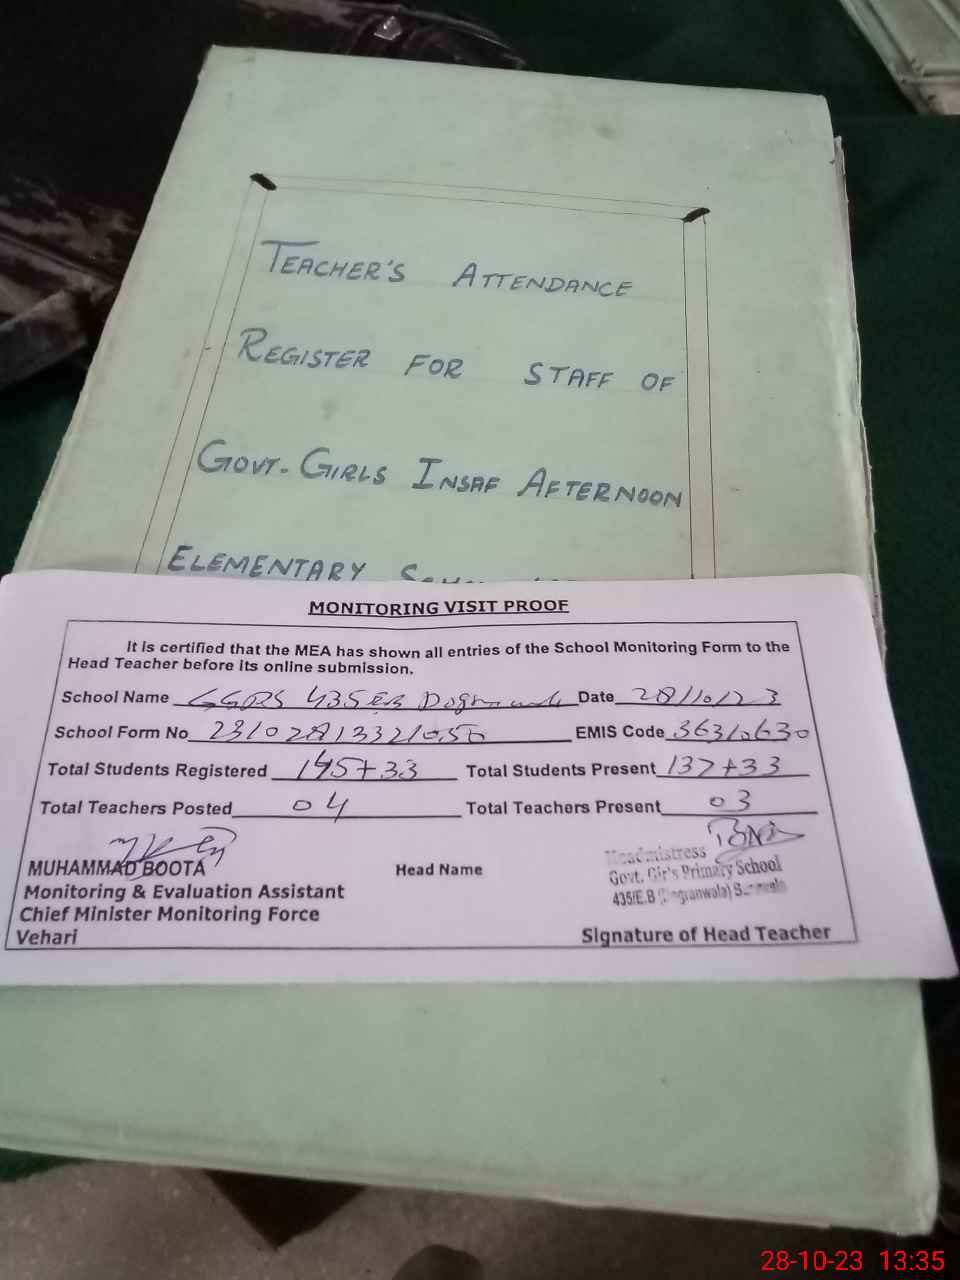 TEACHER'S ATTENDANCE
REGISTER FOR STAFF OF
GOVT. GIRLS INSAF AFTERNOON
ELEMENTARY
MONITORING VISIT PROOF
It is certified that the MEA has shown all entries of the School Monitoring Form to the
Head Teacher before its online submission.
School Name GGPS 435EB Date 28/10/23
School Form No EMIS Code 36310630
Total Students Registered 195+33 Total Students Present 137+33
Total Teachers Posted 04 Total Teachers Present 03
MUHAMMAD BOOTA Head Name Headmistress
Monitoring & Evaluation Assistant Govt. Girl's Primary School
Chief Minister Monitoring Force 435/E.B
Vehari Signature of Head Teacher
28-10-23 13:35